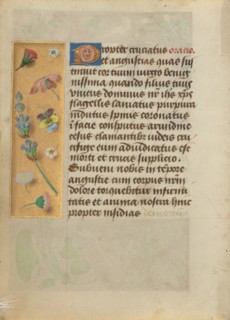 Propter cruciatus oratio.
et angustias quas sus
tinuit cor tuum virgo benig
nissima quando filius tuus
unicus dominus nr ihs xps
flagellis laniatus purpura
indutus spinis coronatus
i facie consputus arundine
cesus clamantibus iudeis cru
cifige eum adiudicatus est
morti et crucis supplicio.
Subveni nobis in tempore
angustie cum corpus nrm
dolore torquebitur infirmi
tatis et anima nostra hinc
propter insidias